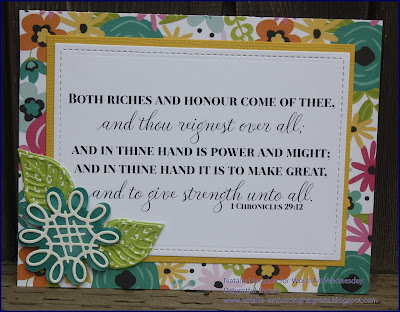 Both riches and honour come of thee,
and thou reignest over all;
and in thine hand is power and might;
and in thine hand it is to make great,
and to give strength unto all.
1 Chronicles 29:12
Natalie
for Word Art Wednesday